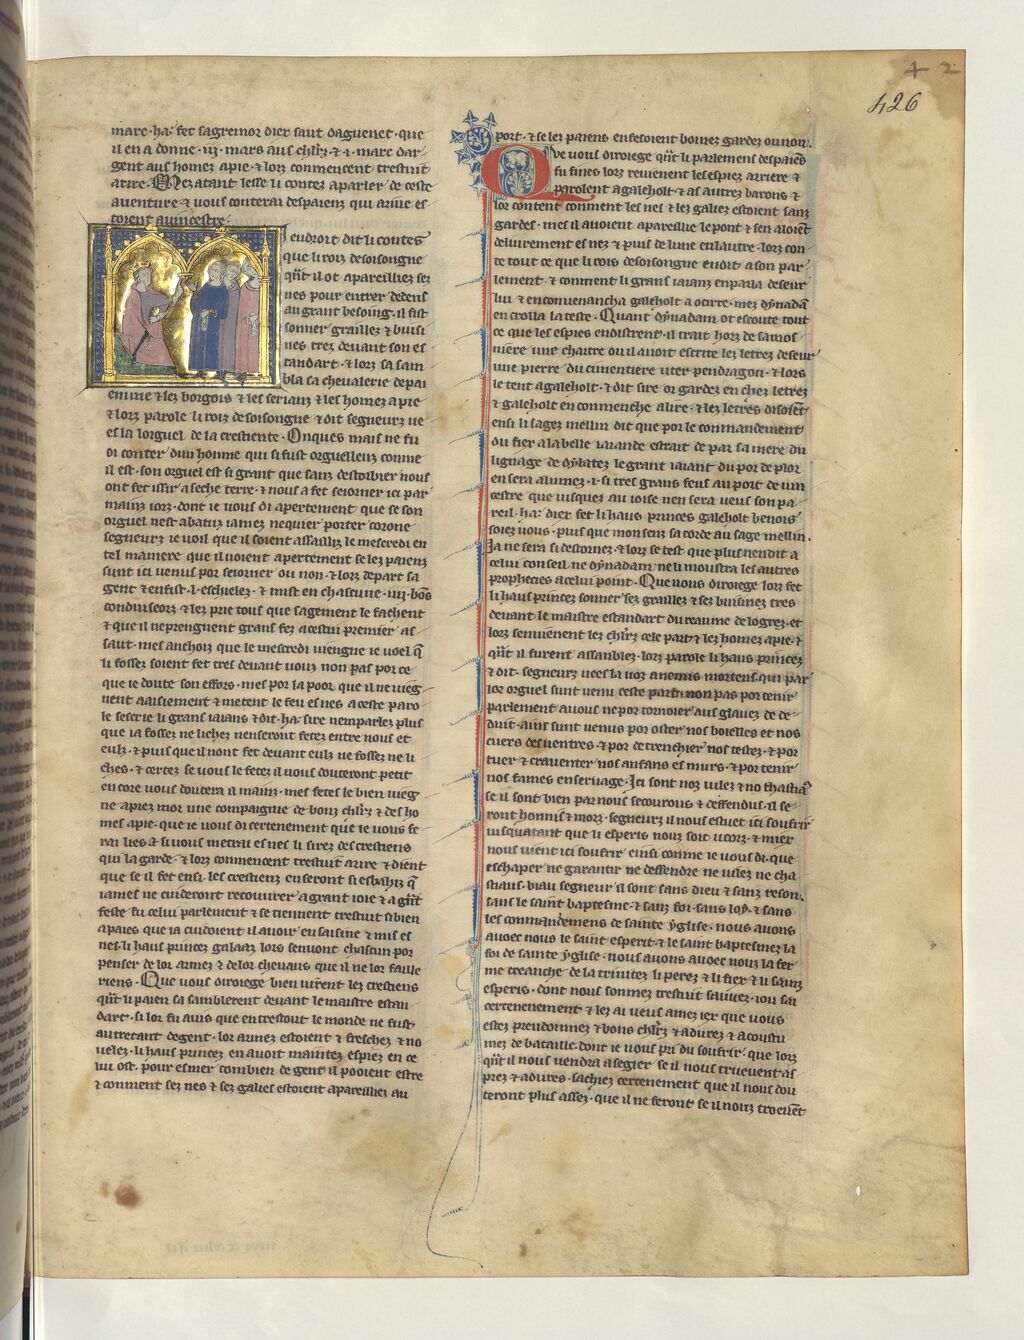 426
marc · ha · fet sagremor dier saut daguenet · que
il en a donne · iiij · mars aus chlrs · ⁊ · i · marc dar
gent aus homes apie ⁊ lors comencent trestuit
arire · Mes atant lesse li contes aparler de ceste
auenture ⁊ vous conterai des paiens qui ariue es
toient a uincestre ·
endroit dit li contes
que li rois de soisongne
qnt il ot apareillies ses
nes pour entrer dedens
an grant besoing · il fist
sonner grailles ⁊ buisi
nes tres deuant son es
tandart · ⁊ lors sa sam
bla sa cheualerie depai
enime ⁊ les borgois ⁊ les serians ⁊ les homes apie
⁊ lors parole li rois de soisongne ⁊ dit segneurs ue
es la lorguel de la crestiente · Onques mais ne fu
oi conter dun homme qui si fust orguelleus comme
il est · son orguel est si grant que sans destorbier nous
ont fet issir a seche terre · ⁊ nous a fet seiorner ici par
mains iors · dont ie vous di apertement que se son
orguel nest abatus iames ne quier porter corone
segneurs ie voil que il soient assailli le mescredi en
tel maniere que il voient apertement se les paiens
sunt ici venus por seiorner ou non · ⁊ lors depart sa
gent ⁊ en fist · l · eschieles · ⁊ mist en chascune · iiij · bons
conduiseors ⁊ les prie tous que sagement le facent
⁊ que il ne prengnent grans fes a cestui premier as
saut · mes anchois que le mescredi viengne ie voel q̃
li fosses soient fet tres deuant vous non pas por ce
que ie doute son effors · mes por la poor que il ne vieg
nent aaisiement ⁊ metent le feu es nes a ceste paro
le sescrie li grans iaians ⁊ dit · ha · sire nemparles plus
que ia fosses ne liches nenseront fetes entre nous et
euls · ⁊ puis que il nont fet deuant euls ne fosses ne li
ches · ⁊ certes se vous le fetes il vous douteront petit
encore vous doutera il mains · mes fetes le bien vieg
ne apies mor une compaignie de bons chlrs ⁊ des ho
mes apie · que ie vous di certenement que ie vous se
rai lies ⁊ si vous metrai es nes li sires des crestiens
qui la garde · ⁊ lors commencent trestuit arire ⁊ dient
que se il fet ensi · les crestiens enseront si esbahis q̃
iames ne cuideront recouurer a grant ioie ⁊ a gnt
feste fu celui parlement ⁊ se tiennent trestuit si bien
apaies que ia cuidoient il auoir en saisine ⁊ mis es
nes · li haus princes galaaz lors sen vont chascun por
penser de lor armes ⁊ de lor cheuaus que il ne lor faille
riens · Que vous diroiege bien virent les crestiens
qnt li paien sa samblerent deuant le maistre estan
dart · si lor fu auis que entrestout le monde ne fust
autretant degent · lor armes estoient ⁊ fresches ⁊ no
ueles · li haus princes en auoit maintes espies en ce
lui ost · pour esmer combien de gent il pooient estre
⁊ comment ses nes ⁊ ses galies estoient apareillies au
port · ⁊ se les paiens en fesoient bones gardes ou non ·
Que vous diroiege qnt li parlemens des paiens
fu fines lors reuienent les espies arriere ⁊
parolent a galeholt ⁊ as autres barons ⁊
lor content comment les nes ⁊ les galies estoient sans
gardes · mes il auoient apareillie le pont ⁊ sen aloient
deliurement es nes ⁊ puis de lune en lautre · lors con
te tout ce que li rois de soisongne en dit a son par
lement · ⁊ comment li grans iaians en parla deseur
lui ⁊ en conuenancha galeholt a ocirre · mes dynadã
en crolla la teste · Quant dynadam ot escoute tout
ce que les espies en distrent · il trait hors de samos
niere une chartre ou il auoit escrite les letres deseur
une pierre du cimentiere uter pendragon · ⁊ lors
le tent a galeholt · ⁊ dit sire or gardes en ches letres
⁊ galeholt en commenche alire · ⁊ les letres disoient
ensi li sages mellin dit que por le commandement
du fier a la belle iaiande estrait de par sa mere du
lignage de dylates le grant iaiant du por de plor
en sera alumes · i · si tres grans feus au port de uin
cestre que iusques au ioise nen sera veus son pa
reil · ha · dier fet li haus princes galeholt benois
soies vous · puis que mon sens sa corde au sage mellin ·
Ja ne sera si destornes · ⁊ lors se test que plus nendit a
celui conseil ne dynadam ne li moustra les autres
prophecies a celui point · Que vous diroiege lors fet
li haus princes sonner ses grailles ⁊ ses buisines tres
deuant le maistre estandart du reaume de logres · et
lors sen vienent les chlrs cele part ⁊ les homes apie · ⁊
qnt il furent assambles · lors parole li haus princes
⁊ dit · segneurs vees la vos anemis mortens qui par
lor orguel sunt venu ceste part non pas por tenir
parlement a vous ne por tornoier aus glaues de de
duit · ains sunt venus por oster nos boielles et nos
cuers des ventres · ⁊ por detrenchier nos testes · ⁊ por
tuer ⁊ crauenter nos enfans es murs · ⁊ por tenir
nos fames en seruage · Ici sont nos viles ⁊ no chastia
se il sont bien par nous secourous ⁊ deffendus · il se
ront honnis ⁊ mors · segneurs il nous estuet ici soufrir
iusquatant que li esperis nous soit
nous vient ici soufrir einsi comme ie vous di · que
eschaper ne garantir ne deffendre ne viles ne cha
stiaus · biau segneur il sont sans dieu ⁊ sans reson ·
sans le saint baptesme · ⁊ sans foi · sans loy · ⁊ sans
les commandemens de sainte yglise · nous auons
auoec nous le saint esperit · ⁊ le saint baptesme · la
foi de sainte yglise · nous auons auoec nous la fer
me creanche de la trinites li peres ⁊ li fier ⁊ li sains
esperis · dont nous sonmes trestuit sauues · iou sai
certenement ⁊ le ai veus ames ier que vous
estes preudonmes ⁊ bons chlrs ⁊ adures ⁊ acoustu
mes de bataille · dont ie vous pri du soufrir · que lors
qnt il nous vendra asegier se il nous trueuent as
pres ⁊ adures · sachies certenement que il nous dou
teront plus asses · que il ne feront se il nous troeuent